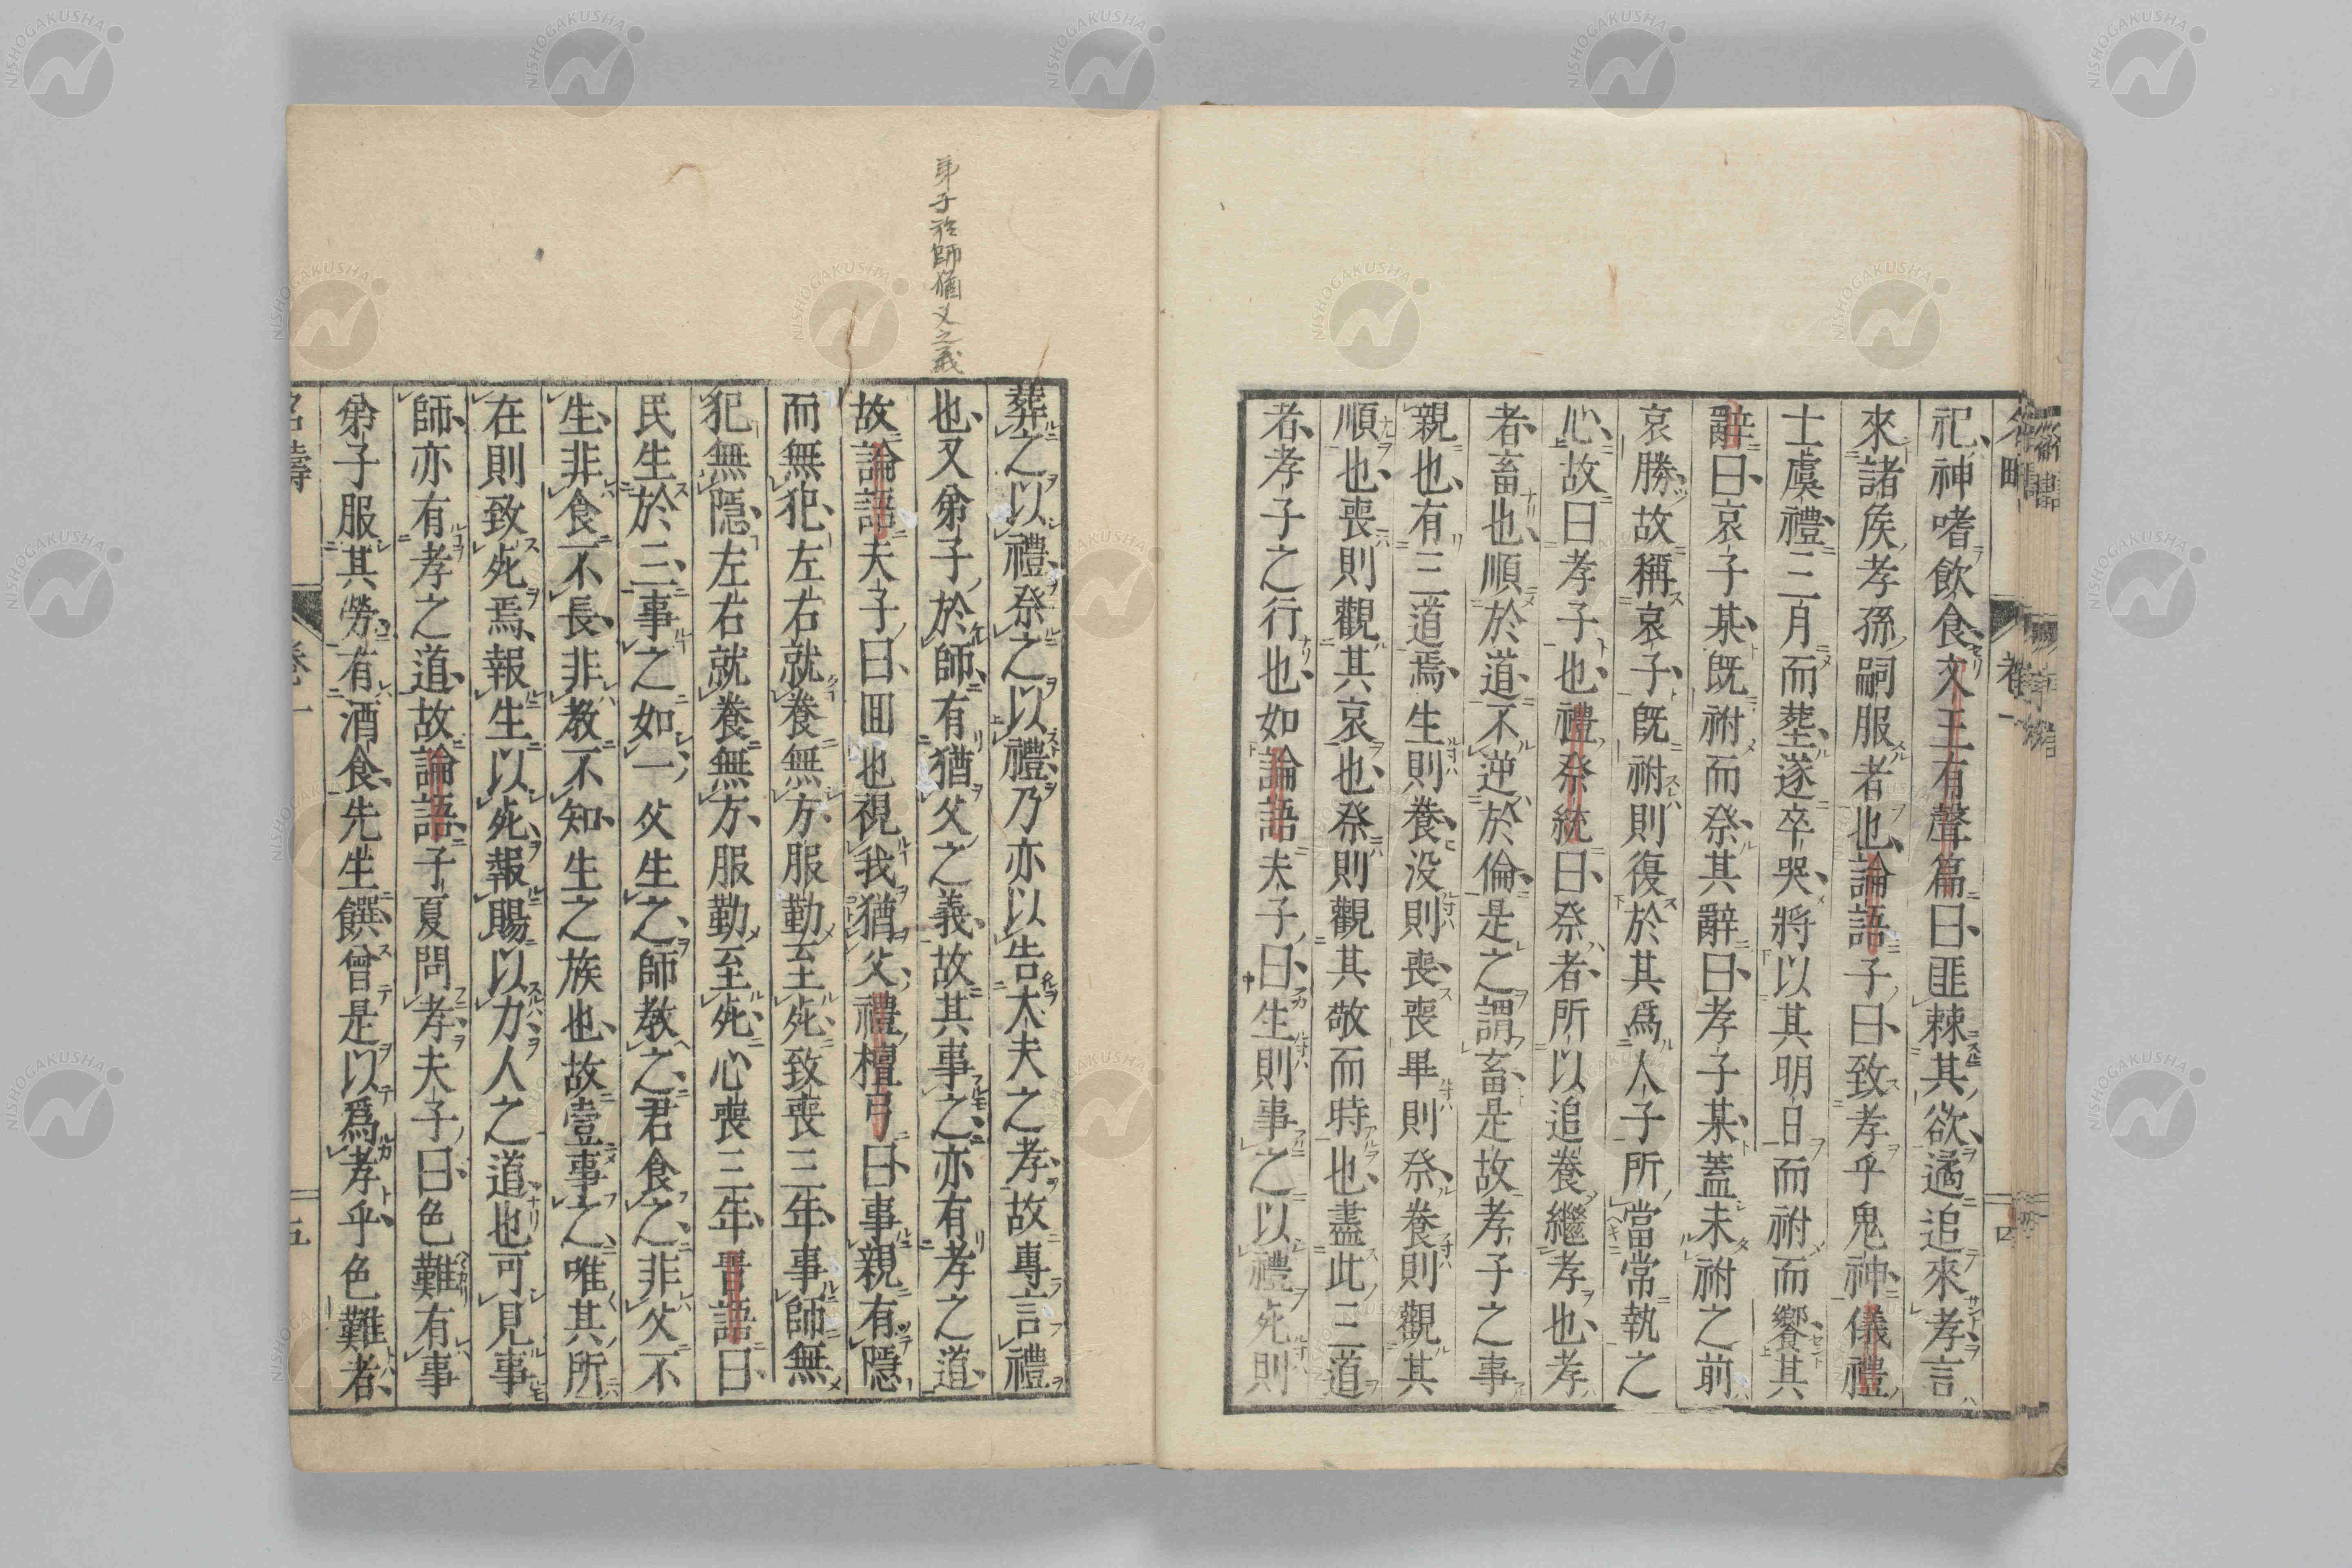 祀、神嗜飲食、文王有聲篇曰、匪棘其欲、遹追來孝、言
來諸矦孝孫嗣服者也、論語子曰、致孝乎鬼神、儀禮
士虞禮、三月而葬、遂卒哭、將以其明日而祔而饗其
辭曰、哀子某、既祔而祭、其辭曰、孝子某、蓋未祔之前
哀勝、故稱哀子、既祔則復於其爲人子所當常執之
心、故曰孝子也、禮祭統曰、祭者、所以追養繼孝也、孝
者、畜也、順於道、不逆於倫、是之謂畜、是故孝子之事
親也、有三道焉、生則養、没則喪、喪畢則祭、養則觀其
順也、喪則觀其哀也、祭則觀其敬而時也、盡此三道
者、孝子之行也、如論語夫子曰、生則事之以禮、死則
卷一
四
弟子於師猶父之義
葬之以禮、祭之以禮、乃亦以告大夫之孝、故專言禮
也、又弟子於師、有猶父之義、故其事之、亦有孝之道、
故論語夫子曰、回也視我猶父、禮檀弓曰、事親有隱
而無犯、左右就養無方、服勤至死、致喪三年、事師無
犯無隱、左右就養無方、服勤至死、心喪三年、晋語曰、
民生於三、事之如一、父生之、師教之、君食之、非父不
生、非食不長、非教不知、生之族也、故壹事之、唯其所
在則致死焉、報生以死、報賜以力、人之道也、可見事
師、亦有孝之道、故論語、子夏問孝、夫子曰、色難、有事
弟子服其勞、有酒食、先生饌、曾是以爲孝乎、色難者、
名疇
卷一
五
NISHOGAKUSHA